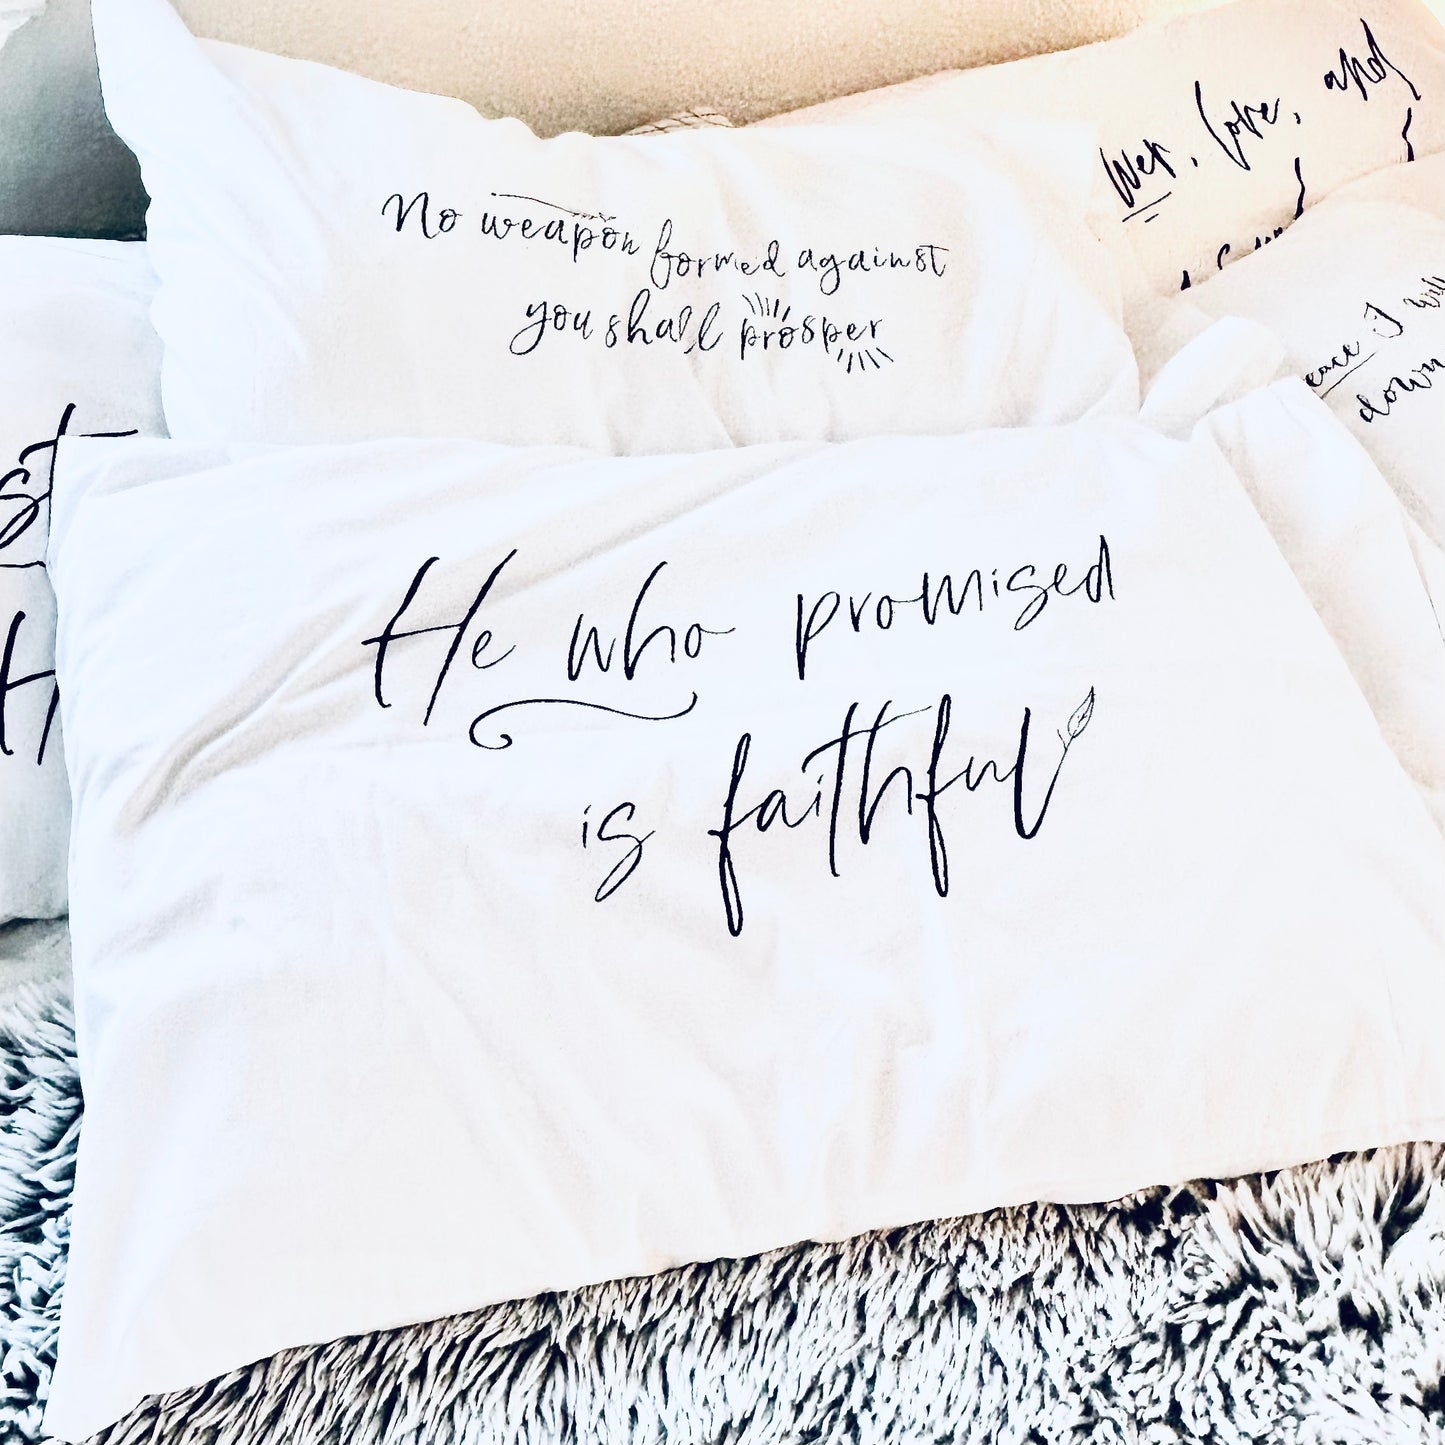 No weapon formed against
you shall prosper
wer, love, and
I will
down
st
H
He who promised
is faithful